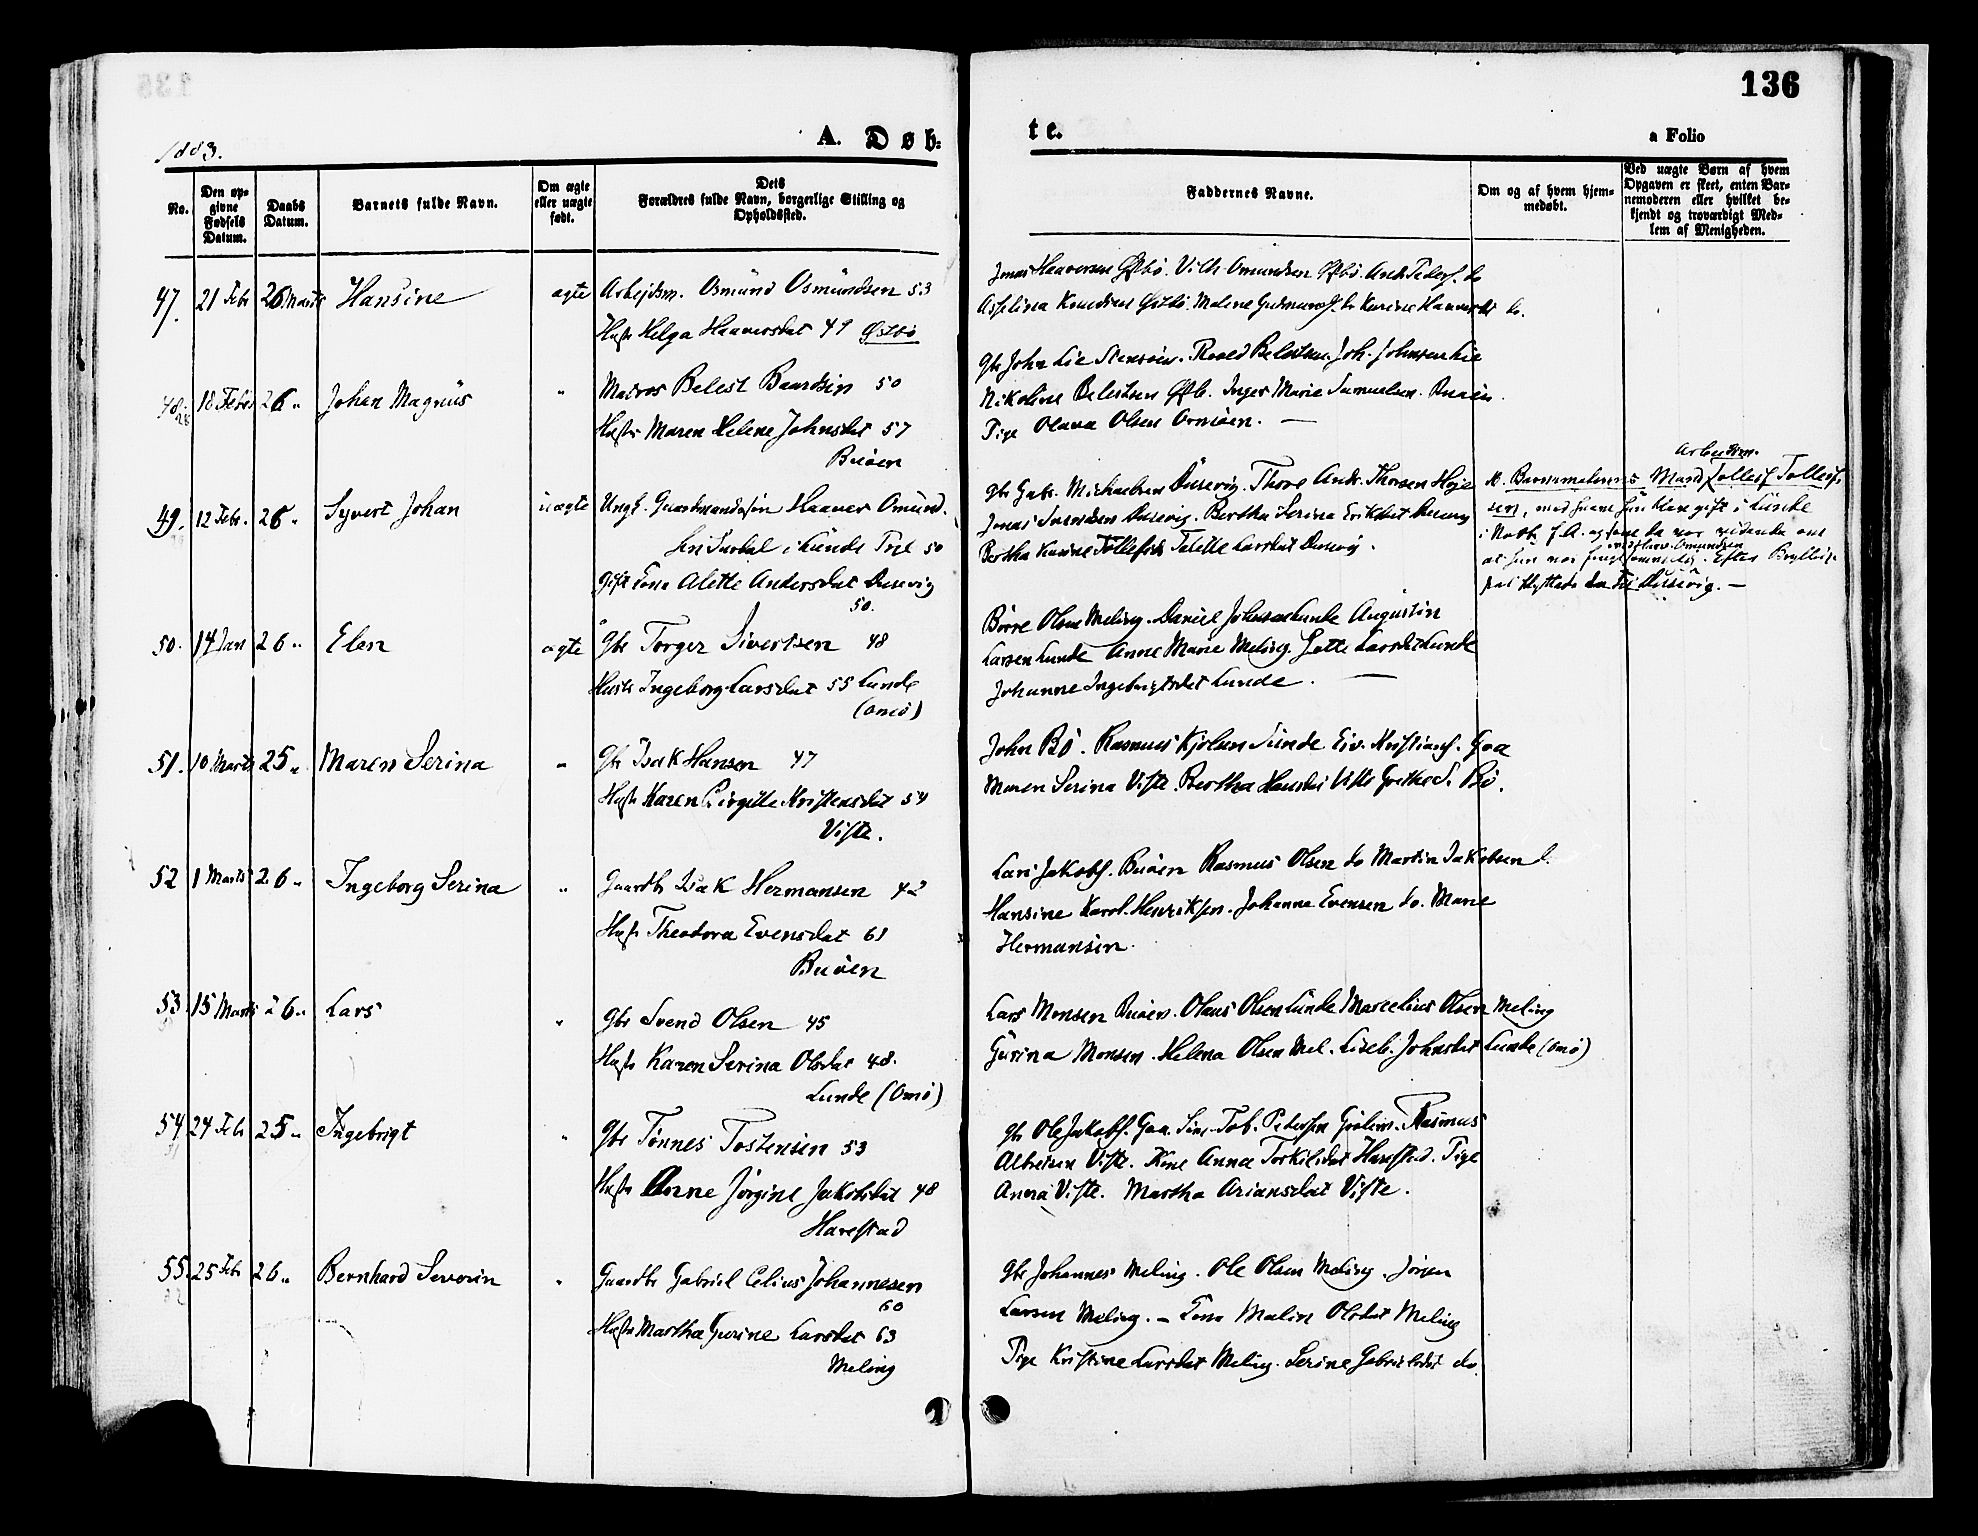 136
1883.
A. Døb=
te.
a Folio
No.
Den op=
givne
Fødsels
Datum.
Daabs
Datum.
Barnets fulde Navn.
Om ægte
eller uægte
født.
Dets
Forældres fulde Navn, borgerlige Stilling og
Opholdssted.
Faddernes Navne.
Om og af hvem hjem=
medøbt.
Ved uægte Børn af hvem
Opgaven er skeet, enten Bar=
nemoderen eller hvilket be=
kjendt og troværdigt Med=
lem af Menigheden.
47. 21 Febr 26 Marts Hansine ægte Arbejdsm. Osmund Osmundsen 53
Hustr Helga Haaversdat 49 Østbø
Jonas Haaversen Østbø. Vilh. Omundsen Østbø. Andr. Peders. do
Knudsen Østbø. Malene do Karine Haaversdt do.
48. 18 Febr 26 " Johan Magnus " Matros Belest Baardsen 50
Hustr Maren Helene Johnsdat 57
Buøen
Gbr John Lie Stensøen. Roald Belestsen. Joh. Johnsen Lie
Nikoline Belestsen Østb. Inger Marie Samuelsen Buøen.
Pige Olava Olsen Ormøen. —
49. 12 Febr. 26 " Syvert Johan uægte Ungk. Gaardmandssøn Haaver Omund.
sen i Lunde 50
Gift Kone Alette Andersdat Dusevig
50.
Gbr Gabr. Michaelsen Dusevig. Thore Andr. Thorsen
Jonas Dusevig. Bertha Serina Eriksdat
Bertha Karine Talette Larsdat Dusevig.
Arbeidsm.
Barnemoderens Mand Tollef Tollefs.
sen, med hvem hun blev gift i Lunde
vidende om
at hun var Efter Bryllup.
flyttede de til Dusevig. —
50. 14 Jan 26 " Elen ægte Gbr Torger Sivertsen 48
Hustr Ingeborg Larsdat 55 Lunde
(Omø)
Børre Olsen Meling. Daniel Johnsen Lunde Augustin
Larsen Lunde Anne Marie Meling. Larsdt Lunde
Johanne Ingebrigtsdat Lunde. —
51. 10 Marts 25 " Maren Serina " Gbr Isak Hansen 47
Hustr Karen Birgitte Kristensdat 54
Viste.
John Bø. Rasmus Sunde Eiv. Kristians. Goa
Maren Serina Viste. Bertha Hansdt Viste Grethe S. Bø.
52 1 Marts 26 " Ingeborg Serina " Gaardbr Isak Hermansen 42
Hustr Theodora Evensdat 61
Buøen
Lars Jakobs. Buøen Rasmus Olsen do Martin Jakobsen d.
Hansine Karol. Henriksen. Johanne Evensen do. Marie
Hermansen.
53 15 Marts 26 " Lars " Gbr Svend Olsen 45
Hustr Karen Serina Olsdat 48.
Lunde (Omø)
Lars Monsen Buøen. Olaus Olsen Lunde Marcelius Olsen Meling
Gurina Monsen. Helena Olsen Mel. Liseb. Johnsdat Lunde (Omø)
54 24 Febr 25 " Ingebrigt " Gbr Tønnes Tostensen 53
Hustr Anne Jørgine Jakobsdat 48
Harestad
Gbr Ole Jakobs. Goa. Tob. Pedersen Rasmus
Albretsen Viste. Kone Anna Torkilsdat Harestad. Pige
Anna Viste. Martha Ariansdat Viste.
55. 25 Febr 26 " Bernhard Severin " Gaardbr Gabriel Celius Johannesen
60
Hustr Martha Gurine Larsdat 63
Meling
Gbr Johannes Meling. Ole Olsen Meling. Jørgen
Larsen Meling. — Kone Malin Olsdat Meling
Pige Kristine Larsdat Meling. Serine Gabrielsdat do.